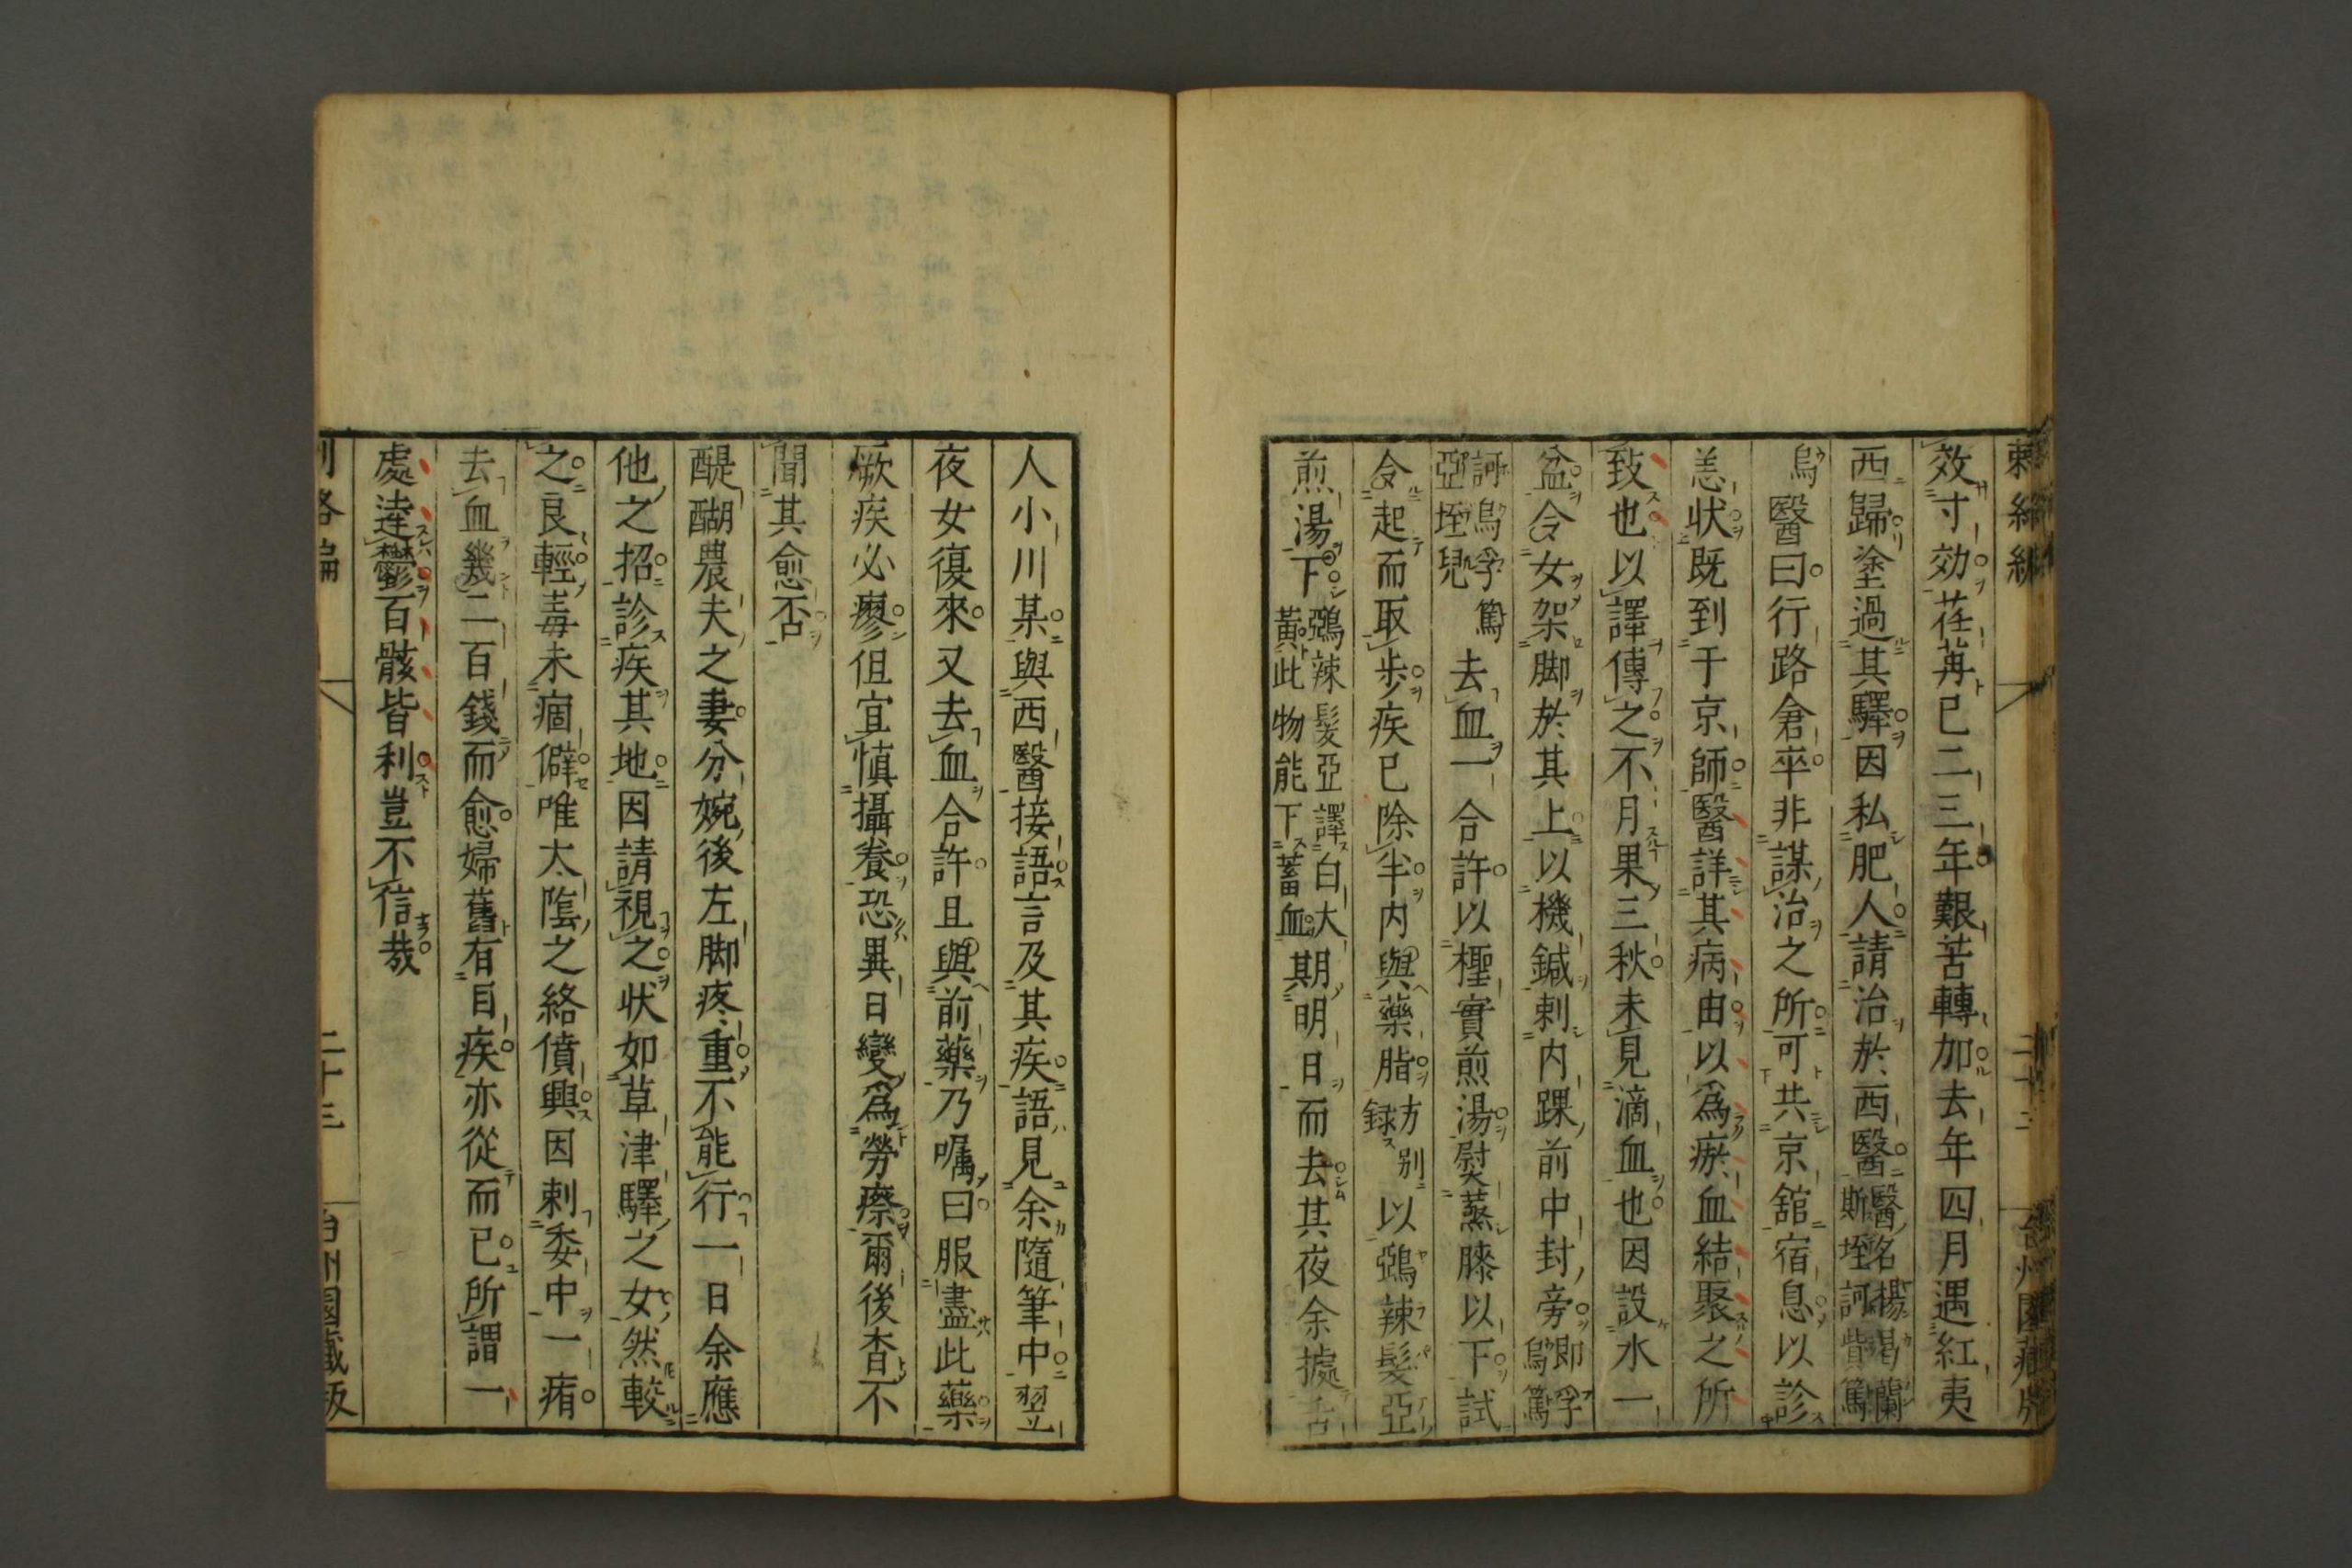 效寸効荏苒已二三年艱苦轉加去年四月遇紅夷
西歸塗過其驛因私肥人請治於西醫醫名楊曷蘭斯垤訶訾篤
烏醫曰行路倉卒非謀治之所可共京舘宿息以診
恙状既到于京師醫詳其病由以爲瘀血結聚之所
致也以譯傳之不月果三秋未見滴血也因設水一
盆令女架脚於其上以機鍼刺内踝前中封旁即孚烏篤
訶烏孚篤亞垤兒去血一合許以檉實煎湯熨蒸膝以下試
令起而取歩疾已除半内與藥脂方別録以鵶辣髮亞
煎湯下鵶辣髮亞譯白大黃此物能下蓄血期明日而去其夜余據舌
人小川某與西醫接語言及其疾語見余隨筆中翌
夜女復來又去血合許且與前藥乃囑曰服盡此藥
厥疾必瘳但宜慎攝養恐異日變爲勞瘵爾後杳不
聞其愈否
醍醐農夫之妻分娩後左脚疼重不能行一日余應
他之招診疾其地因請視之状如草津驛之女然較
之良輕毒未痼僻唯太陰之絡僨興因刺委中一痏
去血幾二百錢而愈婦舊有目疾亦從而已所謂一
處逹鬱百骸皆利豈不信哉
刺絡編
二十三